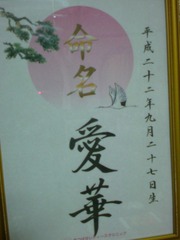 平成二十二年九月二十七日生
命名
愛華